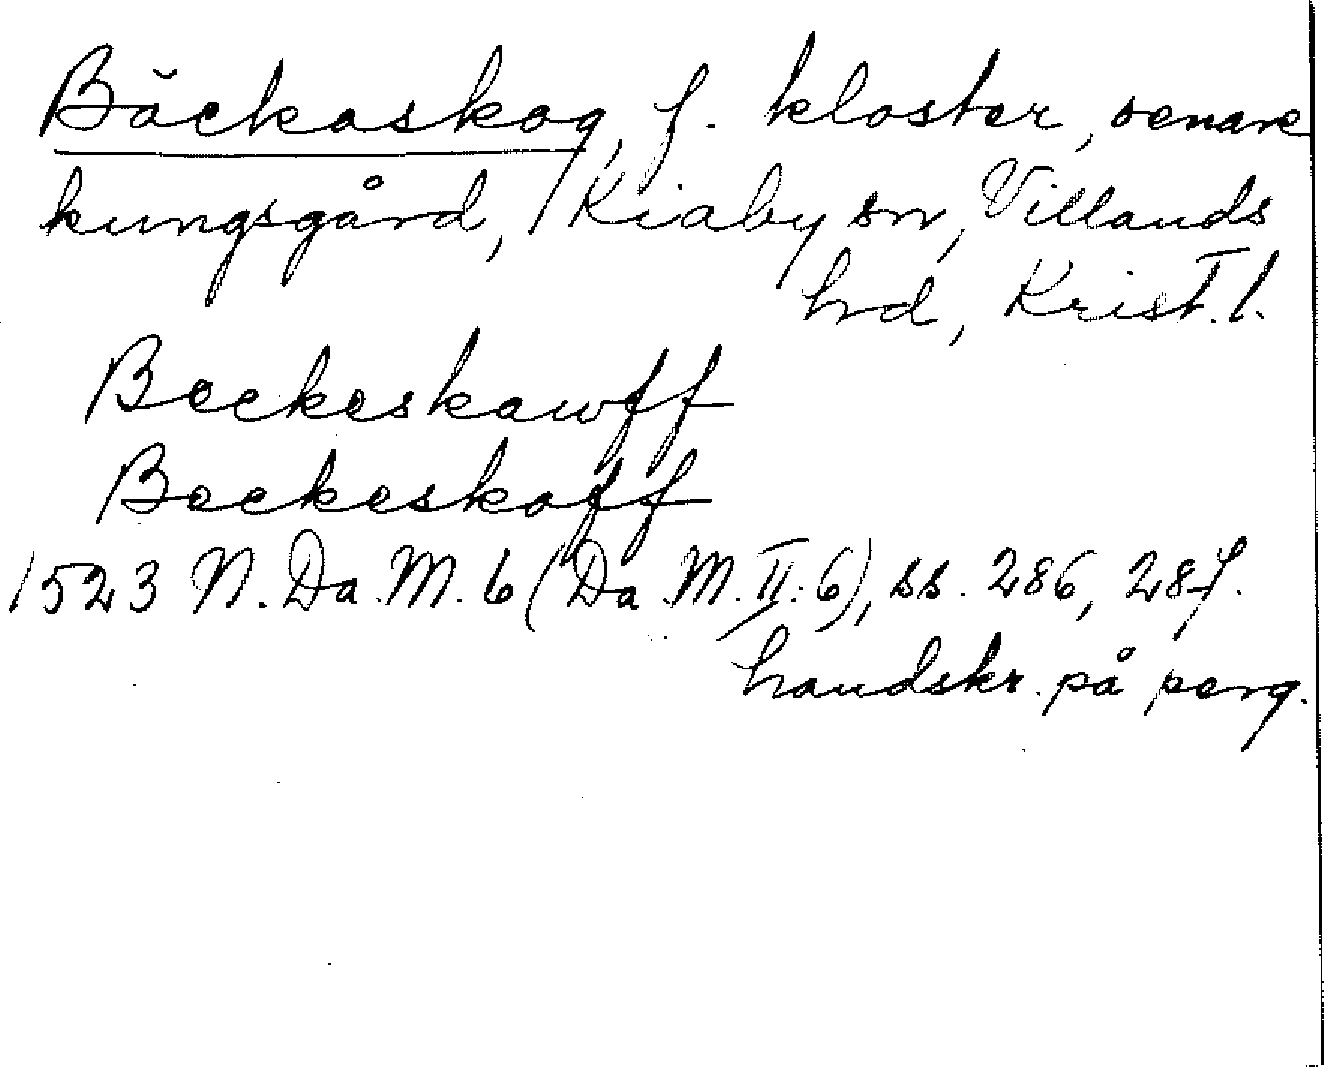 Bäckaskog, f. kloster, senare
kungsgård, Kiaby sn, Villands
hrd, Krist. l.
Beckeskawff
Beckeskoff
1523 N. Da. M. 6 (Da. M. II. 6), ss. 286, 287.
handskr. på perg.